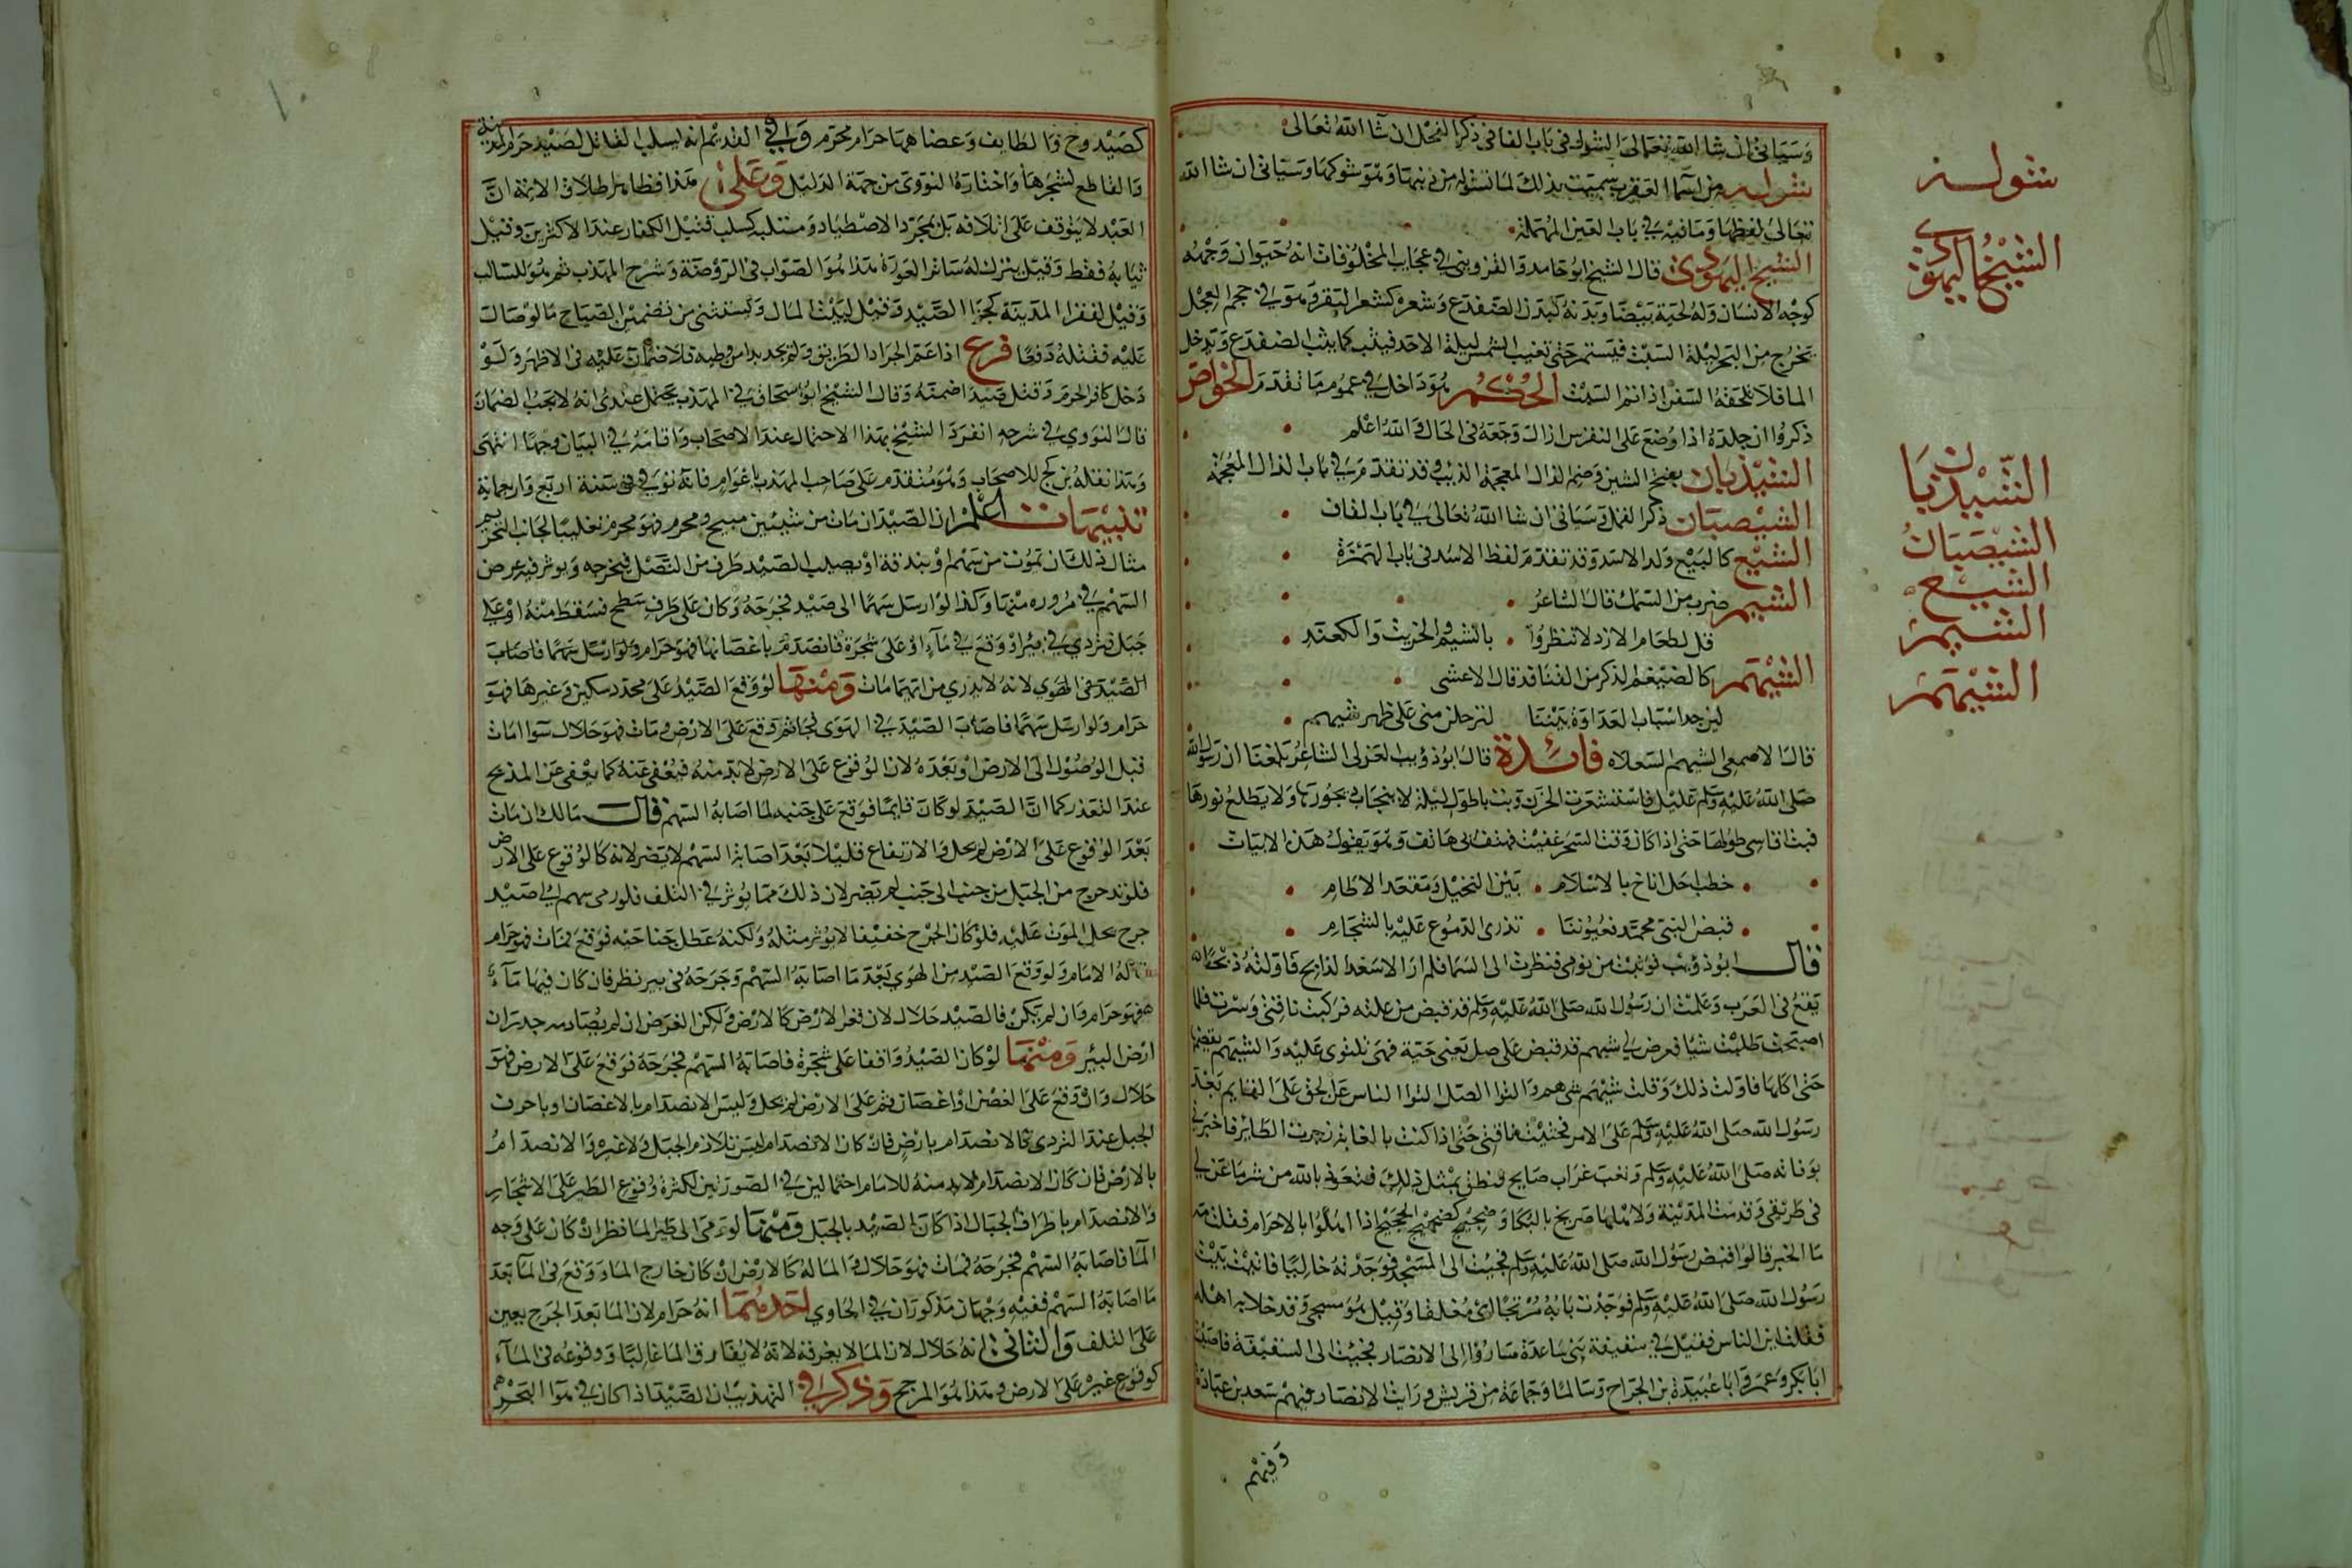 وسياتى ان شا الله تعالى الشول فى باب الفا فى ذكر الفحل ان شا الله تعالى
شوله من اسما العقرب سميت بذلك لما تشوله من ذنبها وهو شوكها وسياتى ان شا الله
تعالى لفظها وما فيه في باب العين المهملة
الشيخ اليهودى قال الشيخ ابو حامد والقزوينى في عجايب المخلوقات انه حيوان وجهه
كوجه الانسان وله لحية بيضا وبدنه كبدن الضفدع وشعره كشعر البقر وهو في حجم العجل
يخرج من البحر ليلة السبت فيستمر حتى تغيب الشمس ليلة الاحد فيثب كما يثب الضفدع ويدخل
الما فلا تلحقه السفن الحكم هو داخل في عموم ما تقدم الخواص
ذكروا ان جلده اذا وضع على النقرس ازال وجعه فى الحال والله اعلم
الشيذبان بفتح الشين وضم الذال المعجمة الذيب وقد تقدم في باب الذال المعجمة
الشيصبان ذكر النمل وسياتى ان شا الله تعالى في باب القاف
الشيع كالبيع ولد الاسد وقد تقدم لفظ الاسد فى باب الهمزة
الشيم ضرب من السمك قال الشاعر
قل لطغام الازد لا تبطروا بالشيم والجريث والكنعد
الشيهم كالضيغم الذكر من القنافد قال الاعشى
لين جد اسباب العداوة بيننا لترحلن منى على ظهر شيهم
قال الاصمعى الشيهم السعلاه فائدة قال ابو ذويب الهذلى الشاعر بلغنا ان رسول الله
صلى الله عليه وسلم عليل فاستشعرت الحزن وبت باطول ليلة لا ينجاب ديجورها ولا يطلع نورها
فبت اقاسى طولها حتى اذا كان وقت السحر غفيت فهتف بى هاتف وهو يقول هذه الابيات
خطب اجل اناخ بالاسلام بين النخيل ومقعد الاطام
قبض النبى محمد فعيوننا تذرى الدموع عليه بالتسجام
قال ابو ذويب فوثبت من نومى فنظرت الى السما فلم ار الا سعد الذابح فاولته ذبحا
يقع فى العرب وعلمت ان رسول الله صلى الله عليه وسلم قد قبض من علته فركبت ناقتى وسرت فلما
اصبحت طلبت شيا فعرض لي شيهم قد قبض على صل يعنى حية فهى تلتوى عليه والشيهم يقضمها
حتى اكلها فاولت ذلك وقلت شيهم شى هم والتوا الصل التوا الناس عن الحق على القايم بعد
رسول الله صلى الله عليه وسلم على الامر فحثيت ناقتى حتى اذا كنت بالغابة زجرت الطاير فاخبرني
بوفاته صلى الله عليه وسلم ونعب غراب صايح فنطق بمثل ذلك فتعوذ بالله من شر ما عن لي
فى طريقى وقدمت المدينة ولاهلها ضجيج بالبكا كضجيج الحجيج اذا اهلوا بالاحرام فقلت مه
ما الخبر قالوا قبض رسول الله صلى الله عليه وسلم فجيت الى المسجد فوجدته خاليا فاتيت بيت
رسول الله صلى الله عليه وسلم فوجدت بابه مرتجا اى مغلقا وقيل هو مسجى وقد خلا به اهله
فقلت اين الناس فقيل في سقيفة بنى ساعدة صاروا الى الانصار فجيت الى السقيفة فاصبت
ابا بكر وعمر وابا عبيدة بن الجراح وسالما وجماعة من قريش ورايت الانصار فيهم سعد بن عبادة
وفيهم
شوله
الشيخ اليهودى
الشيذبان
الشيصبان
الشيع
الشيم
الشيهم
كصيد وج والطايف وعضاههما حرام محرم وفي القديم انه يسلب القاتل لصيد حرم المدينة
والقاطع لشجرها واختاره النووى من جهة الدليل وعلى هذا فظاهر اطلاق الايمة ان
السلب لا يتوقف على اتلافه بل بمجرد الاصطياد وسلبه كسلب قتيل الكفار عند الاكثرين وقيل
ثيابه فقط وقيل يترك له ساتر العورة هذا هو الصواب فى الروضة وشرح المهذب ثم هو للسالب
وقيل لفقرا المدينة كجزا الصيد وقيل لبيت المال ويستثنى من تضمين الصياح ما لو صال
عليه فقتله دفعا فرع اذا عم الجراد الطريق ولم يجد بدا من وطيه فلا ضمان عليه فى الاظهر ولو
دخل كافر الحرم وقتل صيدا ضمنه وقال الشيخ ابو اسحاق في المهذب يحتمل عندى انه لا يجب الضمان
قال النووي في شرحه انفرد الشيخ بهذا الاحتمال عند الاصحاب واقامه في البيان وجها انتهى
وهذا نقله بن كج للاصحاب وهو متقدم على صاحب المهذب باعوام فانه توفي في سنة اربع واربعماية
تنبيهات اعلم ان الصيد ان مات من شيئين مبيح ومحرم فهو محرم تغليبا لجانب التحريم
مثال ذلك ان تموت من سهم او بندقة او يصيب الصيد طرف من النصل فيجرحه ويوثر فيه عرض
السهم في مروره منها وكذا لو ارسل سهما الى صيد فجرحه وكان على طرف سطح فسقط منه او على
جبل فتردي في بئر او وقع في ماء او على شجرة فانصدم باغصانها فهو حرام ولو ارسل سهما فاصاب
الصيد فى الهوي لانه لا يدري من ايهما مات ومنها لو وقع الصيد على محدد سكين وغيرها فهو
حرام ولو ارسل سهما فاصاب الصيد في الهوى ثم وقع على الارض ومات فهو حلال سوا امات
قبل الوصول الى الارض او بعده لان الوقوع على الارض لا بد منه فيعفى عنه كما يعفى عن الذبح
عند التعذر كما ان الصيد لو كان قايما فوقع على جنبه لما اصابه السهم قال مالك ان مات
بعد الوقوع على الارض لم يحل والارتفاع قليلا بعد اصابة السهم لا يضر لانه كالوقوع على الارض
فلو تدحرج من الجبل من جنب الى جنب لم يضر لان ذلك مما يوثر في التلف فلو رمى سهم الي صيد
جرح يحل الموت عليه فلو كان الجرح خفيفا لا يوثر مثله ولكنه عطل جناحه فوقع فمات فهو حرام
قاله الامام ولو وقع الصيد من الهوي بعد ما اصابه السهم وجرحه فى بير نظر فان كان فيها ماء
فهو حرام وان لم يكن فالصيد حلال لان قعر الارض كالارض ولكن الغرض ان لم يصادمه جدران
ارض البئر ومنها لو كان الصيد واقفا على شجرة فاصابه السهم فجرحه فوقع على الارض فهو
حلال وان وقع على الغصن او اغصان ثم على الارض لم يحل وليس الانصدام بالاغصان وباحرف
الجبل عند التردي كالانصدام بارض فان كان الانصدام ليس تلازم الجبل ولا غيره والانصدام
بالارض فان كان الانصدام لا بد منه للامام احتمالين في الصورتين لكثرة وقوع الطير على الاشجار
والانصدام باطراف الجبال اذا كان الصيد بالجبل ومنها لو رمى الى طير الما نظر ان كان على وجه
الما فاصابه السهم فجرحه فمات فهو حلال والما له كالارض وان كان خارج الما ووقع فى الما بعد
ما اصابه السهم ففيه وجهان مذكوران في الحاوي احدهما انه حرام لان الما بعد الجرح يعين
على التلف والثانى انه حلال لان الما لا يغرقه لانه لا يفارق الما غالبا ووقوعه فى الماء
كوقوع غيره على الارض وهذا هو المرجح وذكر في التهذيب ان الصيد اذا كان في هوا البحر